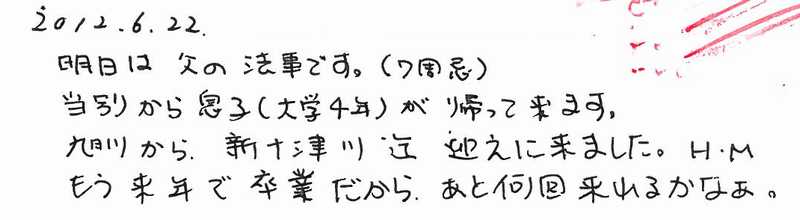 2012.6.22.
明日は父の法事です。(7周忌)
当別から息子(大学4年)が帰って来ます。
旭川から.新十津川迄 迎えに来ました。H.M
もう来年で卒業だから.あと何回来れるかなぁ。